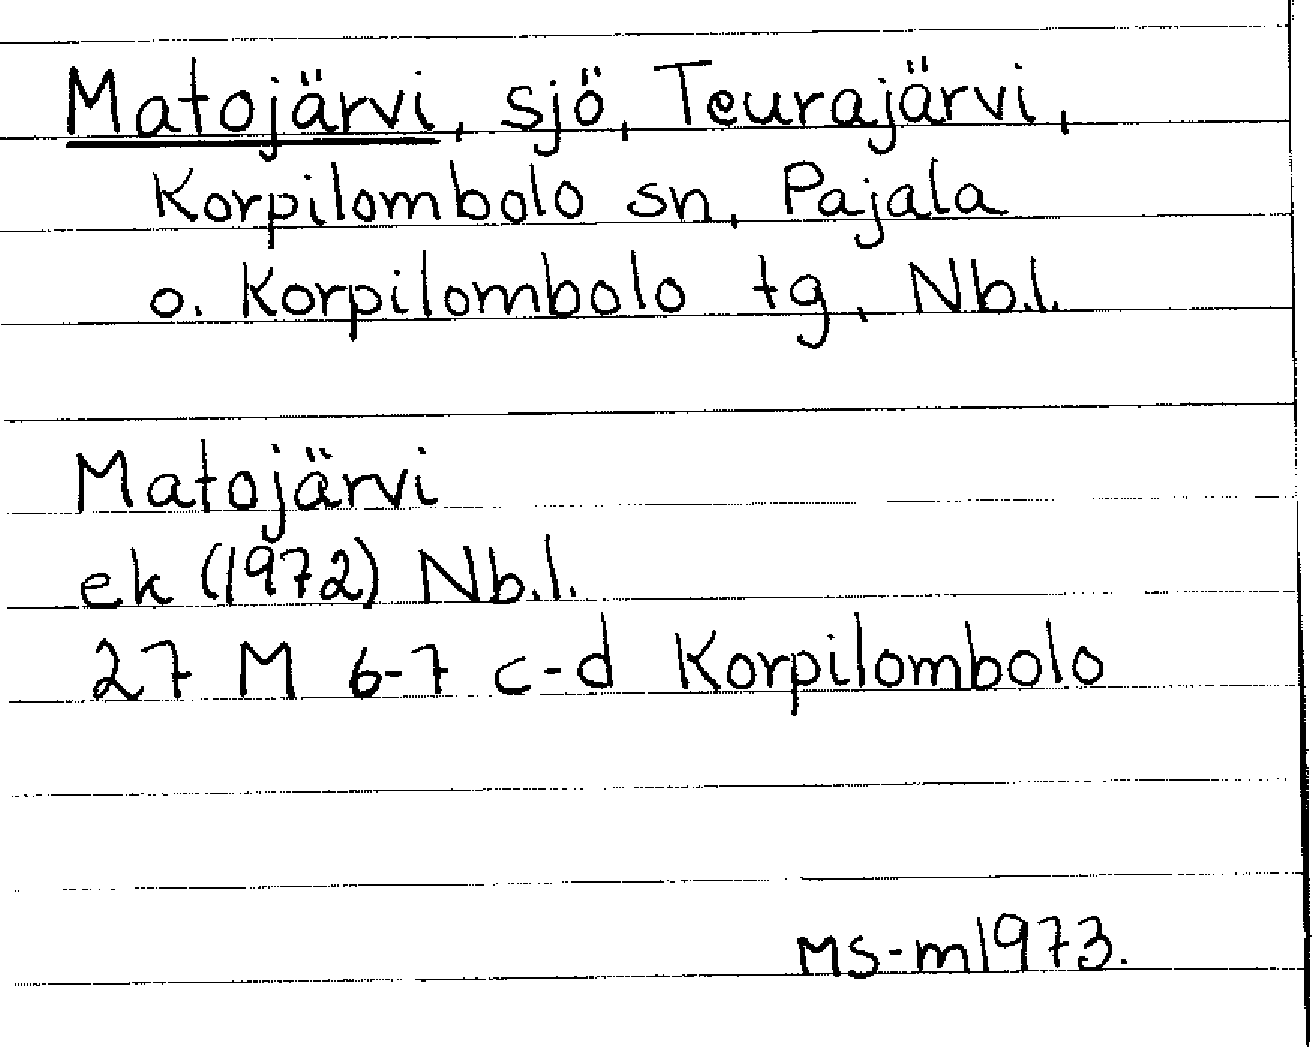 Matojärvi, sjö, Teurajärvi,
Korpilombolo sn, Pajala
o. Korpilombolo tg, Nb.l.
Matojärvi
ek (1972) Nb.l.
27 M 6-7 c-d Korpilombolo
MS-m1973.